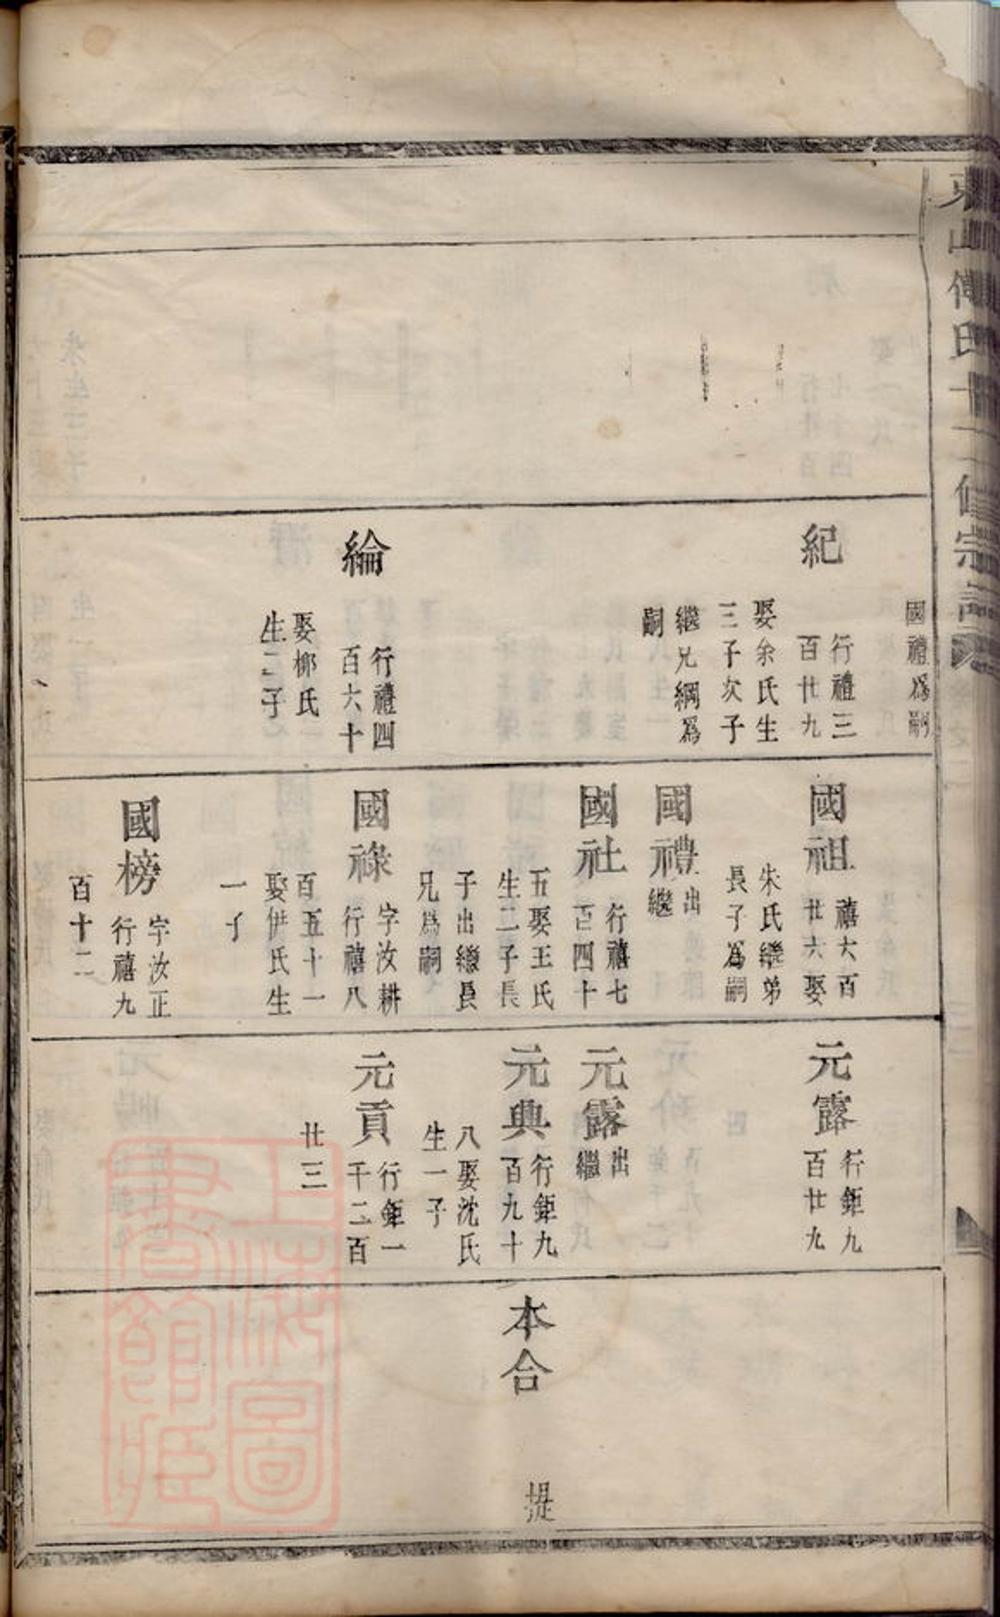 東山傅氏十一修宗譜
國禮爲嗣
紀
行禮三
百廿九
娶余氏生
三子次子
繼兄綱爲
嗣
綸
行禮四
百六十
娶柳氏
生二子
國祖
禧六百
廿六娶
朱氏繼弟
長子爲嗣
國禮
出
繼
國社
行禧七
百四十
五娶王氏
生二子長
子出繼長
兄爲嗣
國祿
字汝耕
行禧八
百五十一
娶伊氏生
一子
國榜
字汝正
行禧九
百十二
元露
行鉅九
百廿九
元露
出
繼
元典
行鉅九
百九十
八娶沈氏
生一子
元貢
行鉅一
千二百
廿三
本合
提
上海圖
書館藏